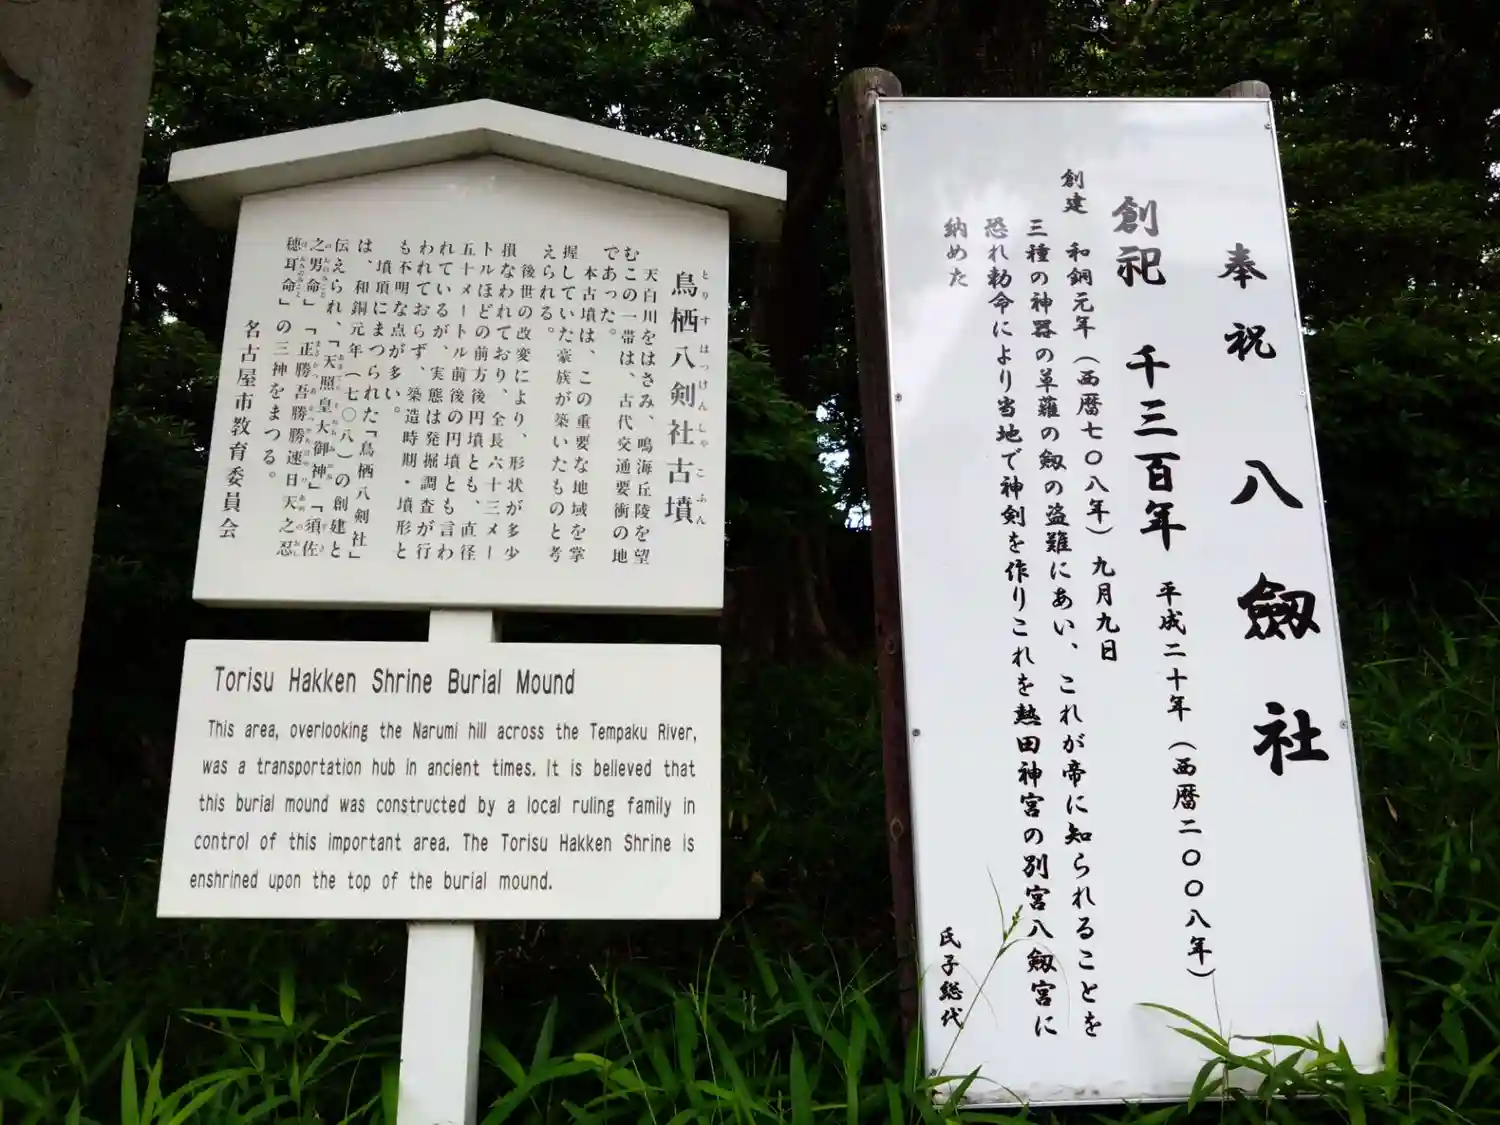 とりす はっけんしゃ こふん
鳥栖八剣社古墳
天白川をはさみ、鳴海丘陵を望
むこの一帯は、古代交通要衝の地
であった。
本古墳は、この重要な地域を掌
握していた豪族が築いたものと考
えられる。
後世の改変により、形状が多少
損なわれており、全長六十三メー
トルほどの前方後円墳とも、直径
五十メートル前後の円墳とも言わ
れているが、実態は発掘調査が行
われておらず、築造時期・墳形と
も不明な点が多い。
墳頂にまつられた「鳥栖八剣社」
は、和銅元年(七〇八)の創建と
伝えられ、「天照皇大御神」「須佐
之男命」「正勝吾勝勝速日天之忍
穂耳命」の三神をまつる。
名古屋市教育委員会
Torisu Hakken Shrine Burial Mound
This area, overlooking the Narumi hill across the Tempaku River,
was a transportation hub in ancient times. It is believed that
this burial mound was constructed by a local ruling family in
control of this important area. The Torisu Hakken Shrine is
enshrined upon the top of the burial mound.
奉祝 八劔社
創祀 千三百年 平成二十年(西暦二〇〇八年)
創建 和銅元年(西暦七〇八年)九月九日
三種の神器の草薙の劔の盗難にあい、これが帝に知られることを
恐れ勅命により当地で神剣を作りこれを熱田神宮の別宮八劔宮に
納めた
氏子総代